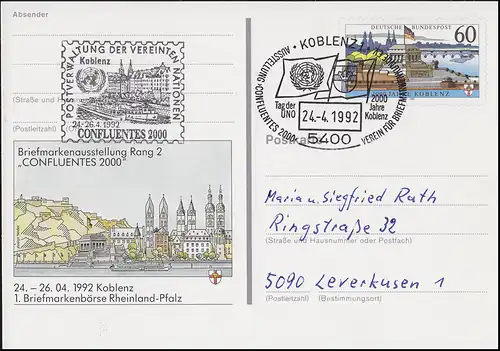 Absender
POSTVERWALTUNG DER VEREINTEN NATIONEN
Koblenz
24-26.4.1992
CONFLUENTES 2000
(Straße und Hausnummer
(Postleitzahl)
Briefmarkenausstellung Rang 2
„CONFLUENTES 2000“
24. – 26. 04. 1992 Koblenz
1. Briefmarkenbörse Rheinland-Pfalz
DEUTSCHE BUNDESPOST
60
2000 JAHRE KOBLENZ
KOBLENZ 1
AUSSTELLUNG·CONFLUENTES 2000·
VEREIN FÜR
Tag der
UNO
24.-4.1992
2000
Jahre
Koblenz
5400
Postkarte
Maria u. Siegfried Rath
Ringstraße 32
(Straße und Hausnummer oder Postfach)
5090 Leverkusen 1
(Postleitzahl) (Bestimmungsort)